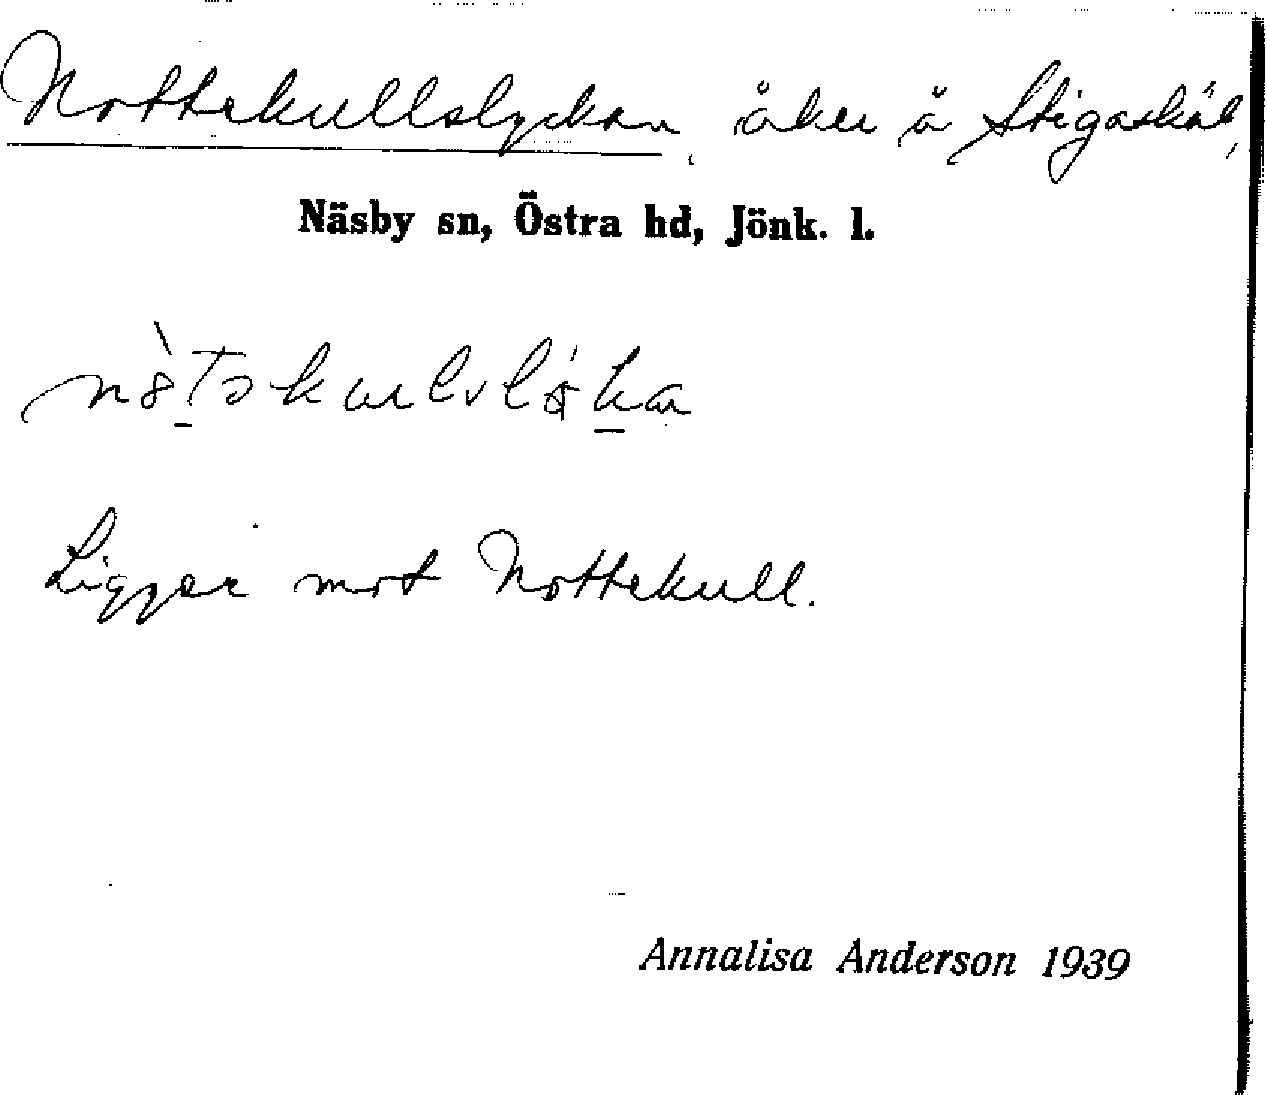 Nottekullslyckan, åker å Stigaskäl,
Näsby sn, Östra hd, Jönk. l.
Ligger mot Nottekull.
Annalisa Anderson 1939